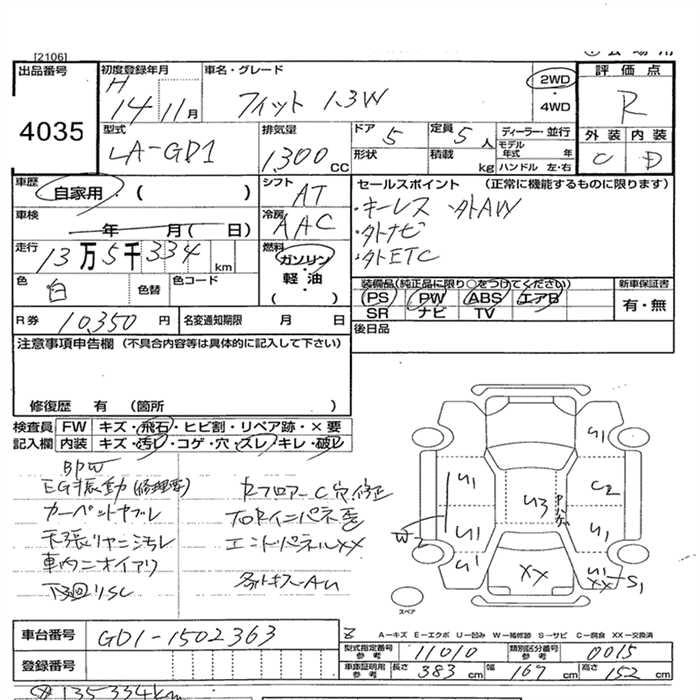 [2106]
出品番号 初度登録年月 車名・グレード 2WD 評価点
H 14 11月 フィット 1.3W ・4WD R
4035 型式 排気量 ドア 5 定員 5人 ディーラー・並行 外装 内装
LA-GD1 1,300 CC 形状 積載 kg モデル年式 年 C D
ハンドル 左・右
車歴 自家用・( ) シフト AT セールスポイント (正常に機能するものに限ります)
車検 年 月( 日) 冷房 AAC ・キーレス ・外AW
・外ナビ
走行 13万5千334km 燃料 ガソリン・軽油 ( ) ・外ETC
色 白 色替 色コード 装備品(純正品に限り○をつけてください) 新車保証書
PS PW ABS エアB 有・無
SR ナビ TV
R券 10,350円 名変通知期限 月 日 後日品
注意事項申告欄(不具合内容等は具体的に記入して下さい)
修復歴 有 (箇所 )
検査員 FW キズ・飛石・ヒビ割・リペア跡・×要
記入欄 内装 キズ・汚レ・コゲ・穴・スレ・キレ・破レ
EG振動(修理要)
カーペットヤブレ
天張リヤニ汚レ
車内ニオイアリ
RフロアーC穴修正
エンドパネルXX
U1 U1 U3 C2
U1 U1 U1 XX
XX S1
スペア
A－キズ E－エクボ U－凹み W－補修跡 S－サビ C－腐食 XX－交換済
車台番号 GD1-1502363
型式指定番号 参考 11010 類別区分番号 参考 0015
登録番号 車庫証明用 参考 長さ 383cm 幅 167cm 高さ 152cm
135334km